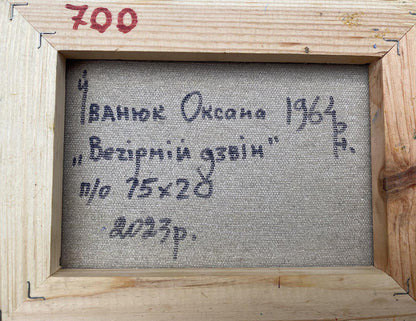 700
Іванюк Оксана 1964 р.н.
„Вечірній дзвін"
п/о 15х20
2023р.